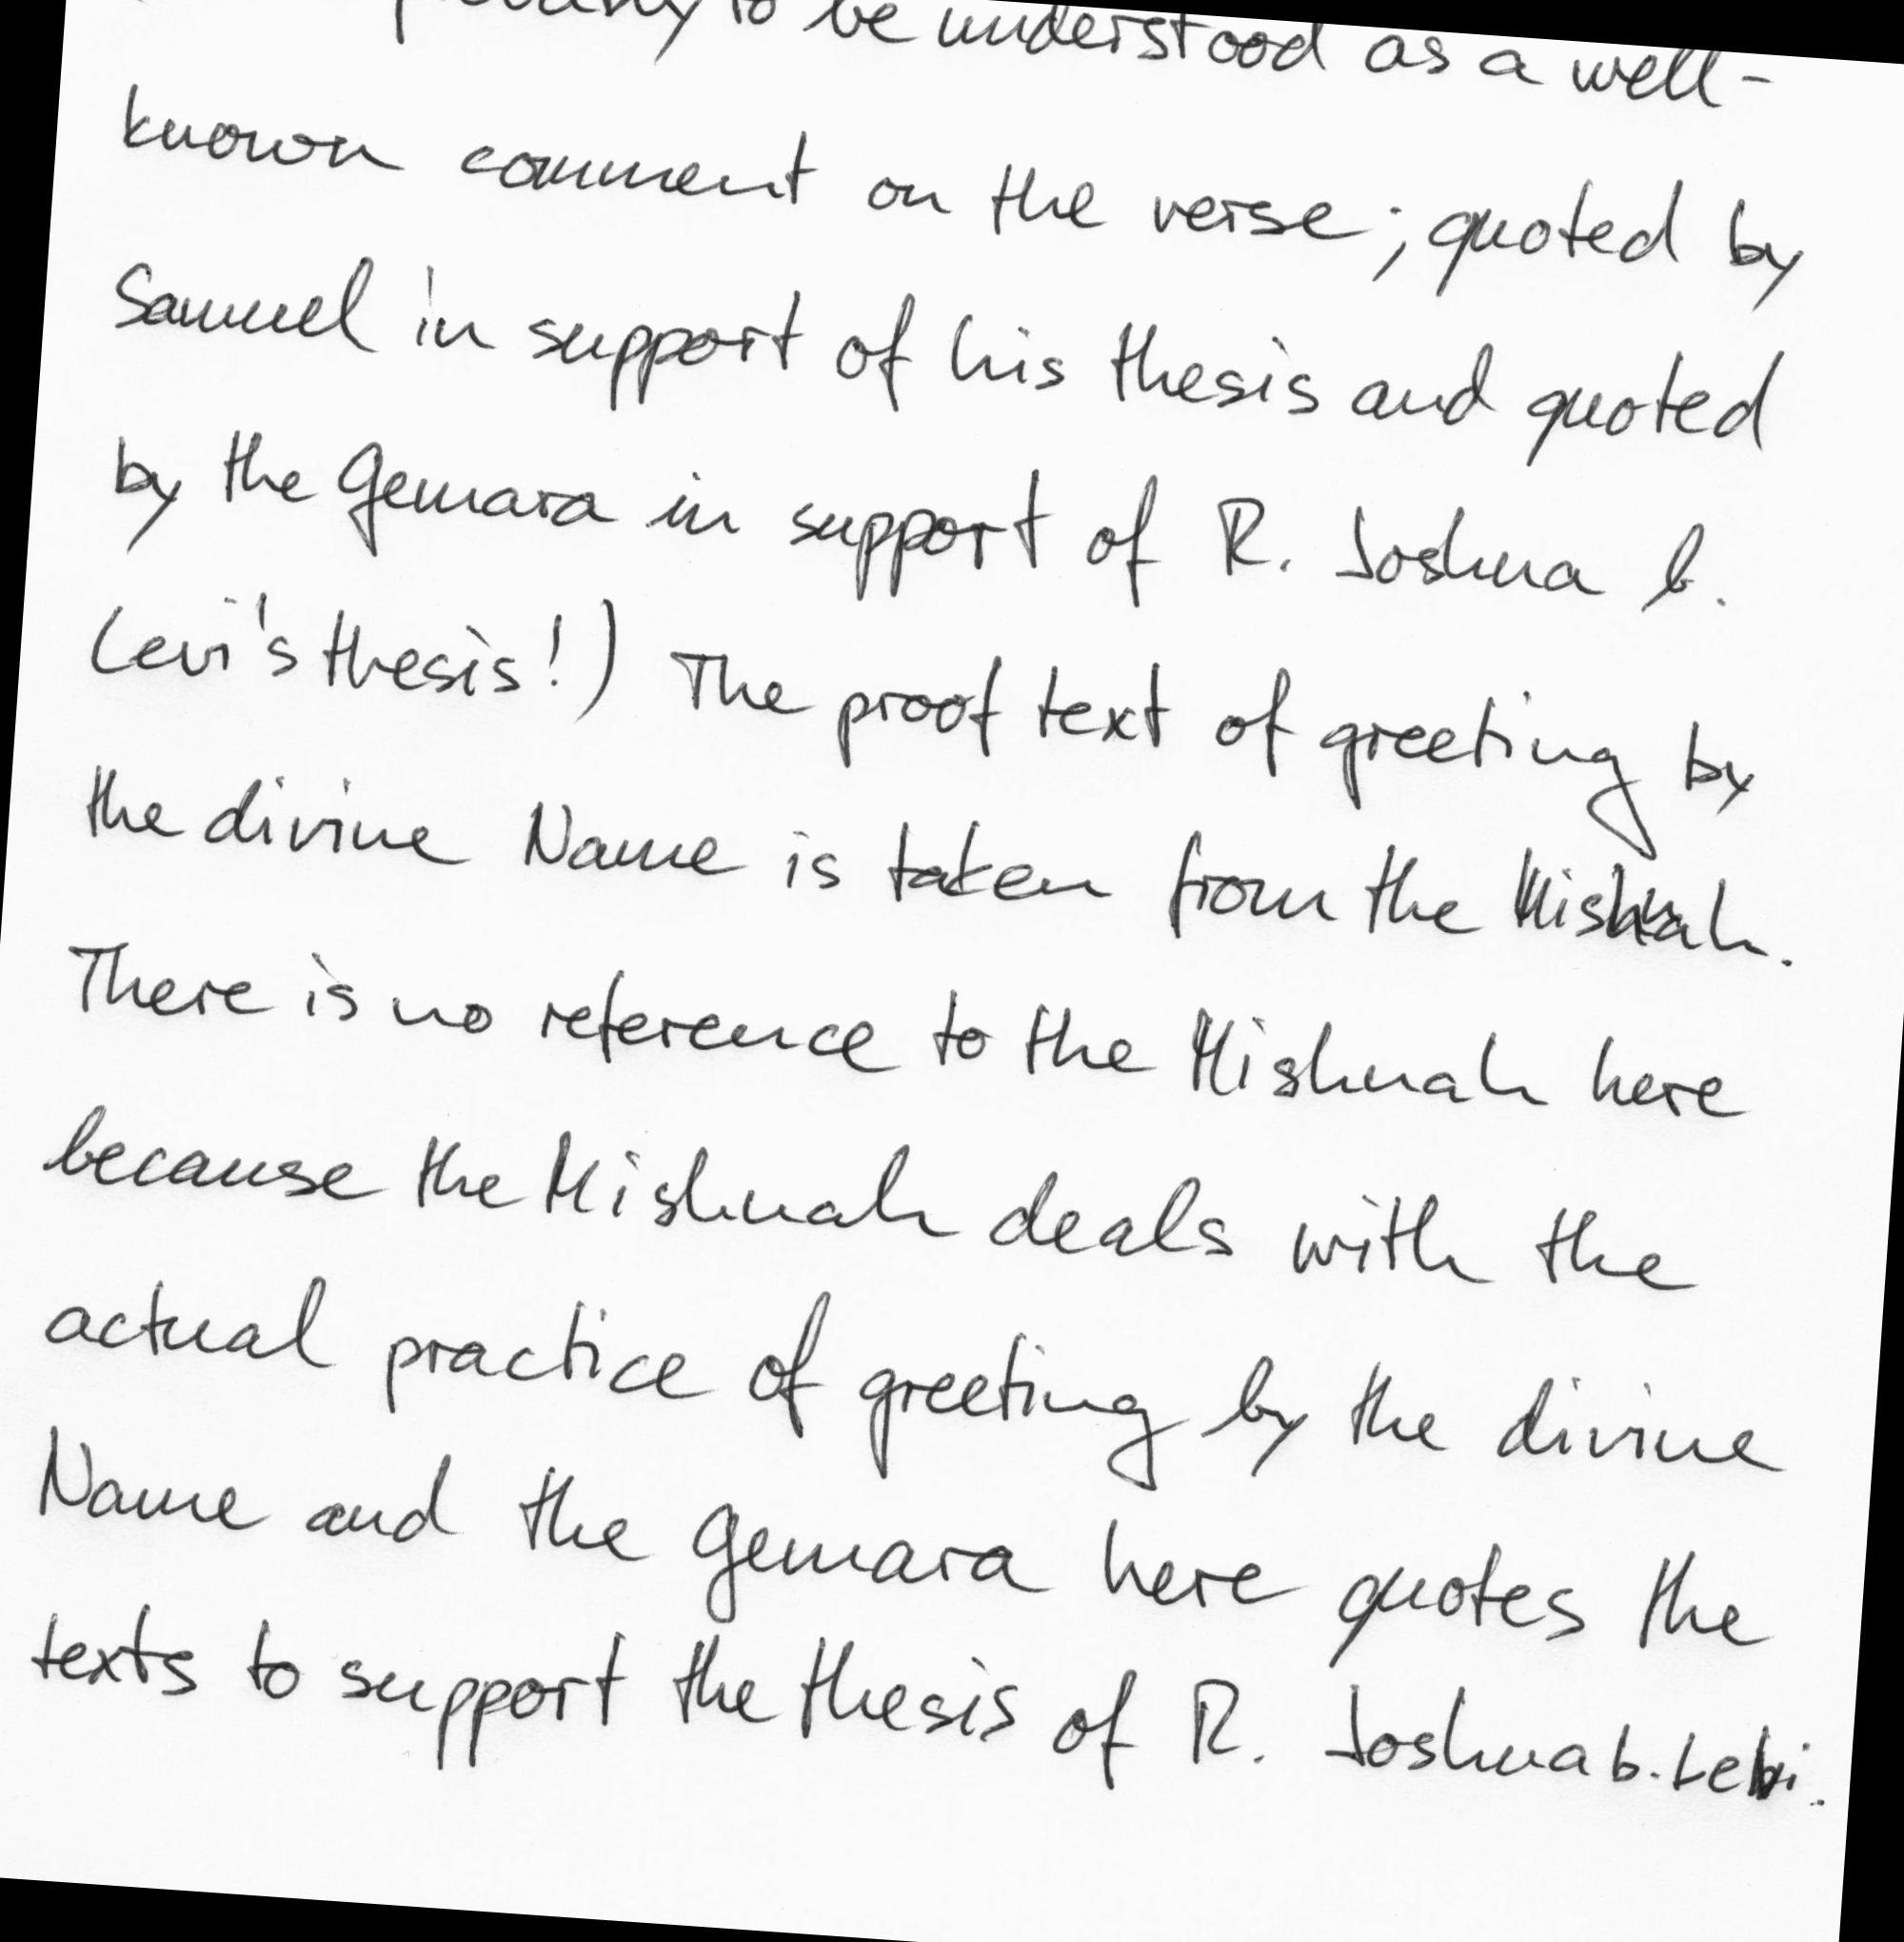 to be understood as a well-
known comment on the verse; quoted by
Samuel in support of his thesis and quoted
by the Gemara in support of R. Joshua b.
Levi's thesis!) The proof text of greeting by
the divine Name is taken from the Mishnah.
There is no reference to the Mishnah here
because the Mishnah deals with the
actual practice of greeting by the divine
Name and the Gemara here quotes the
texts to support the thesis of R. Joshua b. Levi.